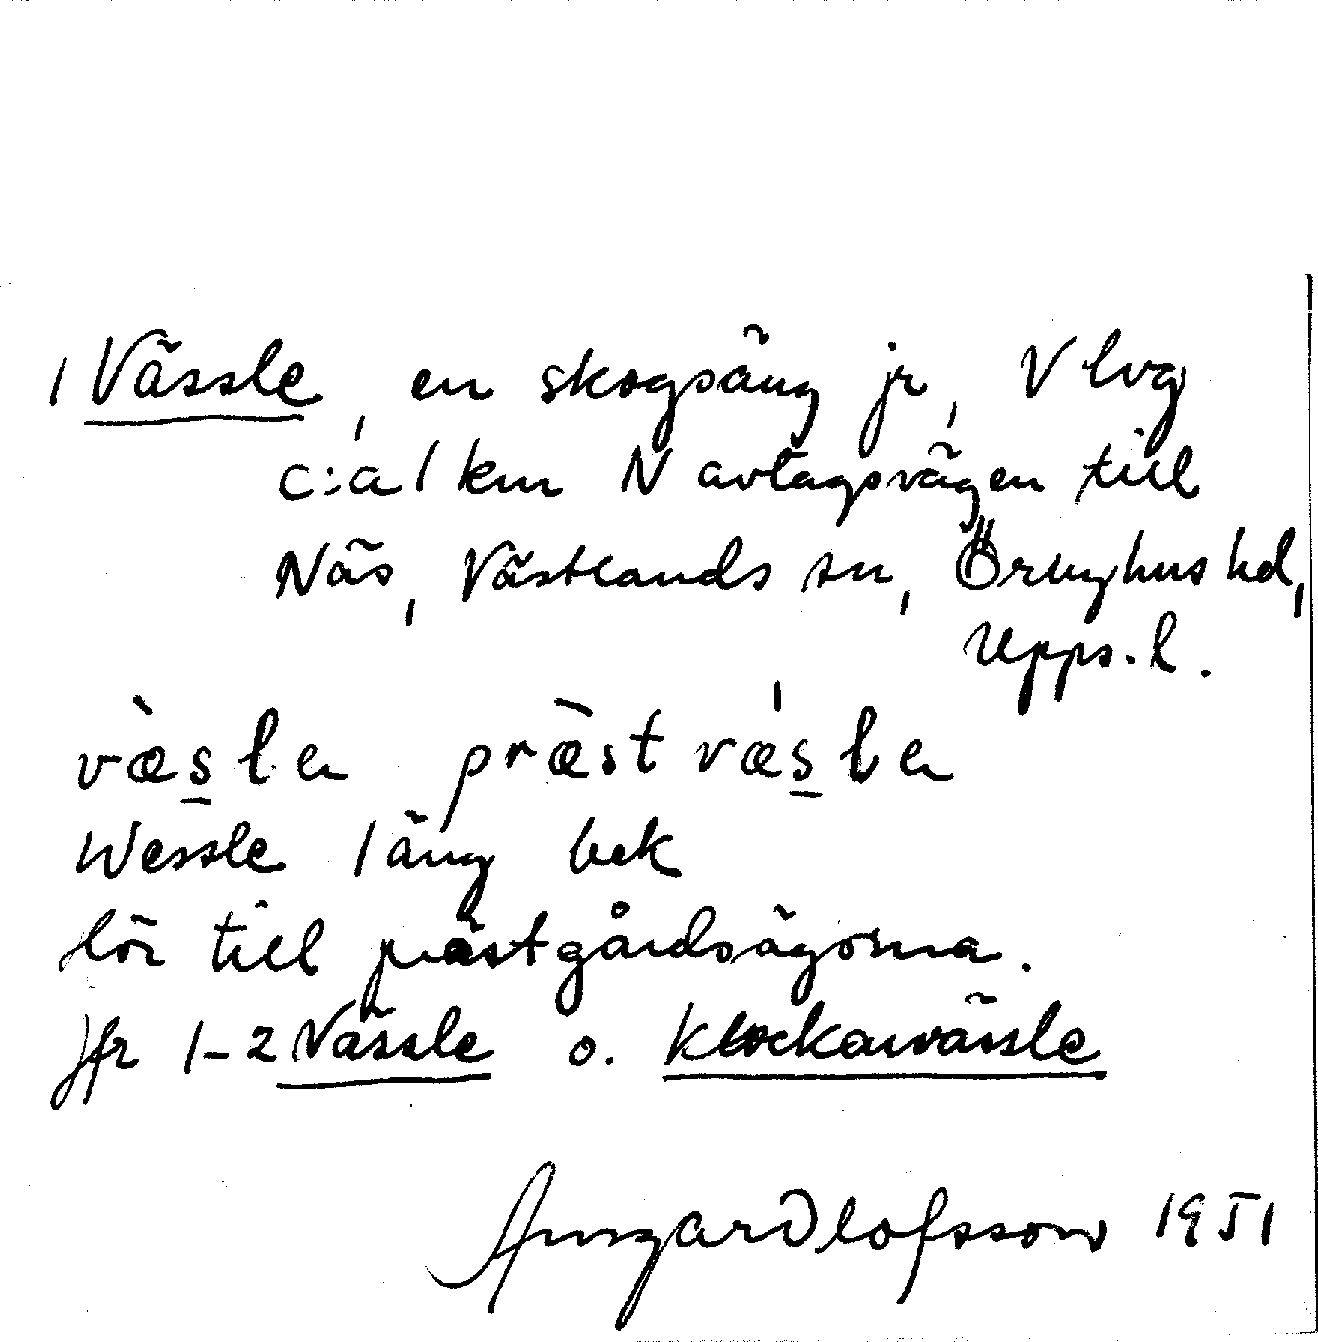 1 Vässle, en skogsäng jr, V lvg
c:a 1 km N avtagsvägen till
Näs, Västlands sn, Örbyhus hd,
Upps. l.
væ̀slen præ̀stvǽslen
Wessle 1 äng bek
hör till prästgårdsägorna.
Jfr 1-2 Vässle o. Klockarvässle
Olofsson 1951